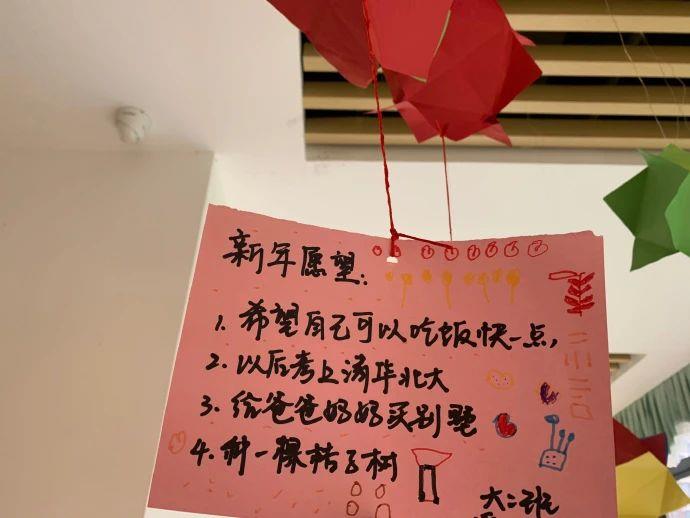 新年愿望:
1. 希望自己可以吃饭快一点,
2. 以后考上清华北大
3. 给爸爸妈妈买别墅
4. 种一棵桔子树
大二班